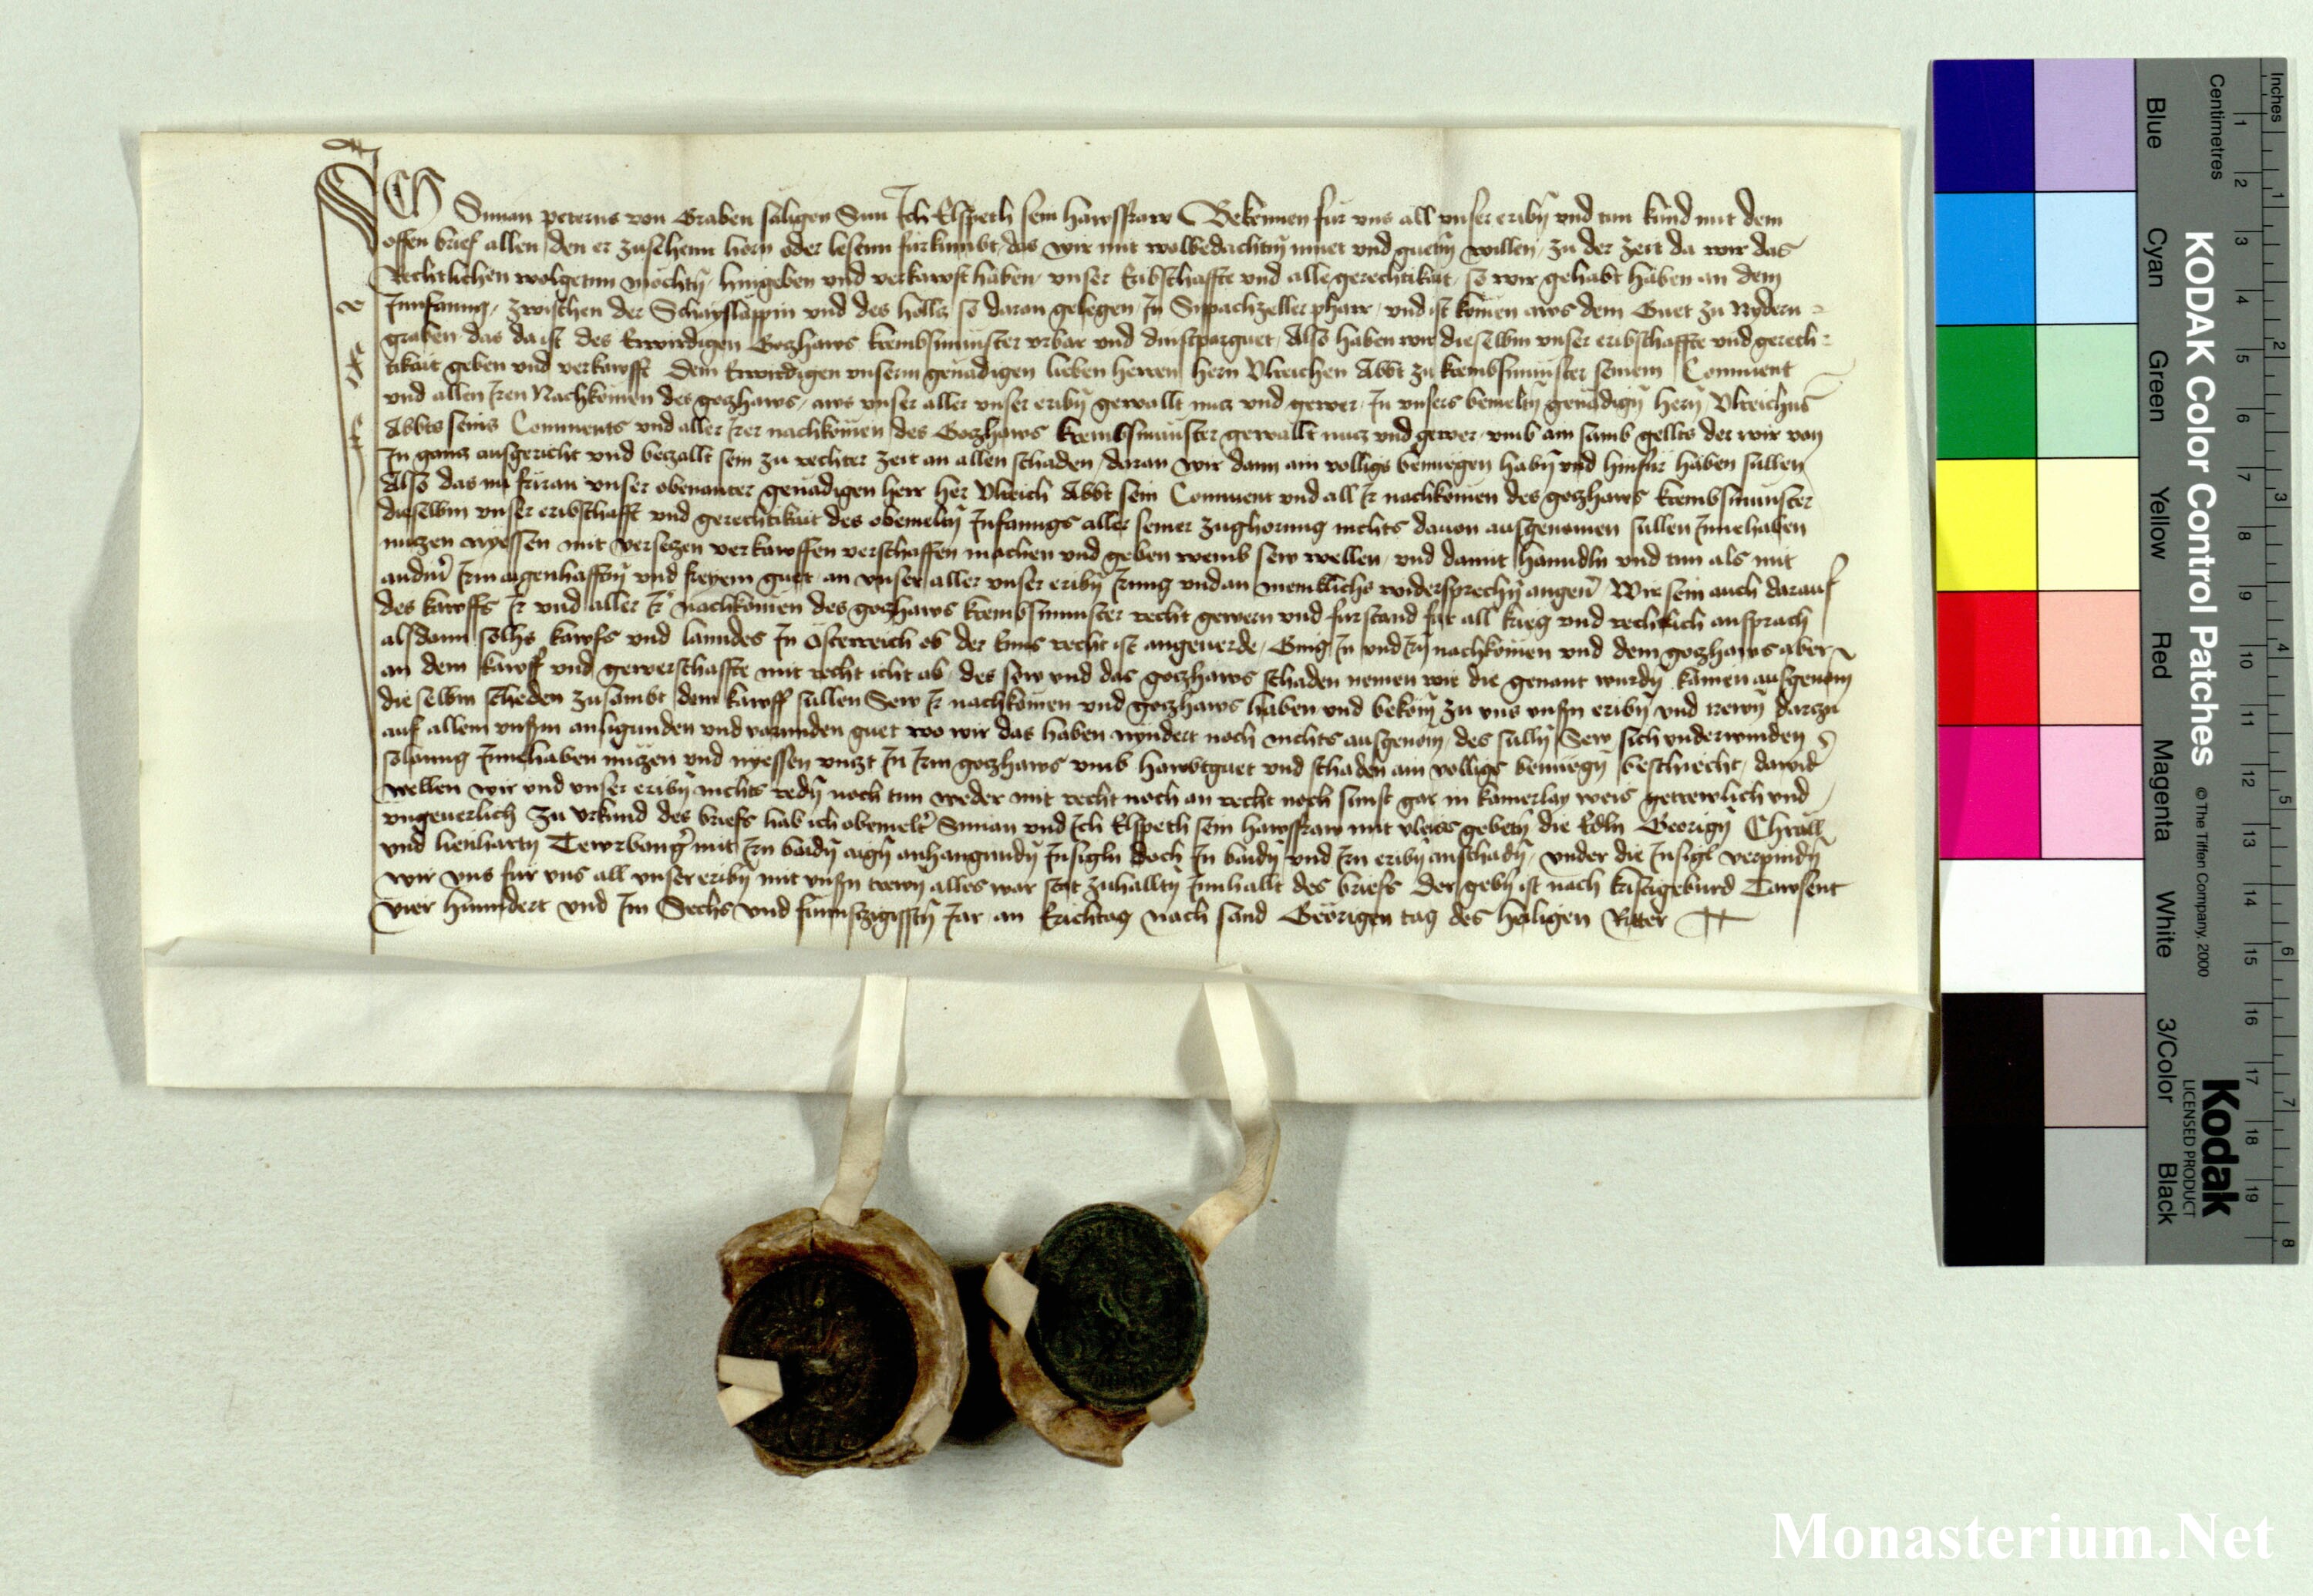 Ich Siman peterns von Graben säligen Sun Ich Elspeth sein hawsfraw Bekennen für vns all vnser eribn̄ vnd tun kund mit dem
offen brief allen den er zusehenn hörn oder lesenn fürkumbt, das wir mit wolbedachtm̄ muet vnd guetm̄ willen, zu der zeit da wir das
Rechtlichen wolgetun mochtn̄, hingeben vnd verkawft haben, vnser Eribschaffte vnd alle gerechtikait, so wir gehabt haben an dem
Innfanng, zwischen der Schayslappin vnd des hollz so daran gelegen, In Sipachzeller pharr, vnd ist kömen aws dem Guet zu Nydern-
graben das da ist des Erwirdigen Gozhaws krembsmünster vrbar vnd dinstparguet, Also haben wir dieselbm vnser eribschaffte vnd gerech-
tikait geben vnd verkawfft Dem Erwirdigen vnserm genädigen lieben herren hern Vlreichen Abbt zu krembsmünster seinem Conuent
vnd allen Iren Nachkömen des gozhaws, aws vnser aller vnser eribn̄ gewallt nuz vnd gewer, In vnsers bemeltn̄ genädign̄ hern̄ Vlreichns
Abbts seins Conuents vnd aller Irer nachkömen des Gozhaws krembsmünster gewallt nuz vnd gewer, vmb ain sumb gellts der wir von
In ganz ausgericht vnd bezallt sein zu rechter zeit an allen schaden, daran wir dann ain volligs benuegen habn̄ vnd hinfür haben süllen
Also das nu füran vnser obenanter genädigen herr her Vlreich Abbt sein Conuent vnd all Ir nachkömen des gozhaws krembsmünster
dieselbm vnser eribschafft vnd gerechtikait des obemeltn̄ Infanngs aller seiner zughorung nichts dauon ausgenomen süllen Innehaben
nuzen nyessen mit versezen verkawffen verschaffen machen vnd geben wemb sew wellen, vnd damit hanndln vnd tun als mit
andm̄ Irm aigenhafftn̄ vnd freyem guet an vnser aller vnser eribn̄ Irrung vnd an meniklichs widersprechn̄ angeu͂, Wir sein auch darauf
des kawffs Ir vnd aller Ir nachkömen des gozhaws krembsmünster recht gewern vnd fürstand für all krieg vnd rechtlich ansprach
alsdann solhs kawfs vnd lanndes In Österreich ob der Enns recht ist angeuerde, Gieng In vnd Irn̄ nachkömen vnd dem gozhaws aber
an dem kawff vnd gewerschaffte mit recht icht ab, des sew vnd das gozhaws schaden nemen wie die genant wurdn̄ kainen ausgenom̄
die selbm scheden zusambt dem kawff süllen Sew Ir nachkömen vnd gozhaws haben vnd bekom̄ zu vns vnsn̄ eribn̄ vnd trewn̄ darzu
auf allem vnsm̄ anligunden vnd varunden guet wo wir das haben nyndert noch nichts ausgenom̄, des sulln̄ Sew sich vnderwinden
solanng Innehaben nüzen vnd nyessen vnzt In Irm gozhaws vmb hawbtguet vnd schaden ain volligs benüegn̄ beschiecht, dawid͛
wellen wir vnd vnser eribn̄ nichts redn̄ noch tun weder mit recht noch an recht noch sunst gar in kainerlay weis getrewlich vnd
vngeuerlich Zu Vrkund des briefs hab ich obemelt͛ Siman vnd Ich Elspeth sein hawsfraw mit vleiss gebetn̄ die Edln Georign̄
vnd lienhartn̄ mit Irn baidn̄ aign̄ anhangundn̄ Insigln doch In baidn̄ vnd Irn eribn̄ anschadn̄, vnder die Insigl verpindn̄
wir vns für vns all vnser eribn̄ mit vnsn̄ trewn̄ alles war stat zuhalltn̄ Innhallt des briefs Der gebn̄ ist nach kristigeburd Tawsent
vier hunndert vnd Im Sechs vnd fünnfzigisstn̄ Jar an Erichtag nach sand Georigen tag des heiligen Ritter
KODAK Color Control Patches
© The Tiffen Company, 2000
Kodak
LICENSED PRODUCT
Blue Cyan Green Yellow Red Magenta White 3/Color Black
Centimetres 1 2 3 4 5 6 7 8 9 10 11 12 13 14 15 16 17 18 19
Inches 1 2 3 4 5 6 7 8
Monasterium.Net